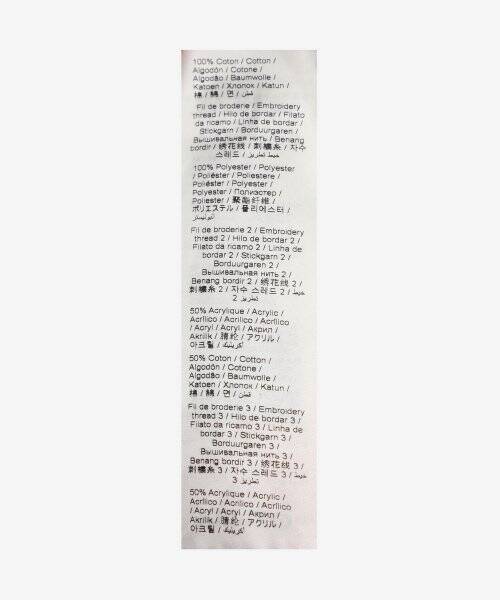 100% Coton / Cotton /
Algodón / Cotone /
Algodão / Baumwolle /
Katoen / Хлопок / Katun /
棉 / 綿 / 면 / قطن
Fil de broderie / Embroidery
thread / Hilo de bordar / Filato
da ricamo / Linha de bordar /
Stickgarn / Borduurgaren /
Вышивальная нить / Benang
bordir / 绣花线 / 刺繍糸 / 자수
스레드 / خيط تطريز
100% Polyester / Polyester
/ Poliéster / Poliestere /
Poliéster / Polyester /
Polyester / Полиэстер /
Poliester / 聚酯纤维 /
ポリエステル / 폴리에스터 /
البوليستار
Fil de broderie 2 / Embroidery
thread 2 / Hilo de bordar 2 /
Filato da ricamo 2 / Linha de
bordar 2 / Stickgarn 2 /
Borduurgaren 2 /
Вышивальная нить 2 /
Benang bordir 2 / 绣花线 2 /
刺繍糸 2 / 자수 스레드 2 / خيط
تطريز 2
50% Acrylique / Acrylic /
Acrílico / Acrilico / Acrílico
/ Acryl / Acryl / Акрил /
Akrilik / 腈纶 / アクリル /
아크릴 / أكريليك
50% Coton / Cotton /
Algodón / Cotone /
Algodão / Baumwolle /
Katoen / Хлопок / Katun /
棉 / 綿 / 면 / قطن
Fil de broderie 3 / Embroidery
thread 3 / Hilo de bordar 3 /
Filato da ricamo 3 / Linha de
bordar 3 / Stickgarn 3 /
Borduurgaren 3 /
Вышивальная нить 3 /
Benang bordir 3 / 绣花线 3 /
刺繍糸 3 / 자수 스레드 3 / خيط
تطريز 3
50% Acrylique / Acrylic /
Acrílico / Acrilico / Acrílico
/ Acryl / Acryl / Акрил /
Akrilik / 腈纶 / アクリル /
아크릴 / أكريليك